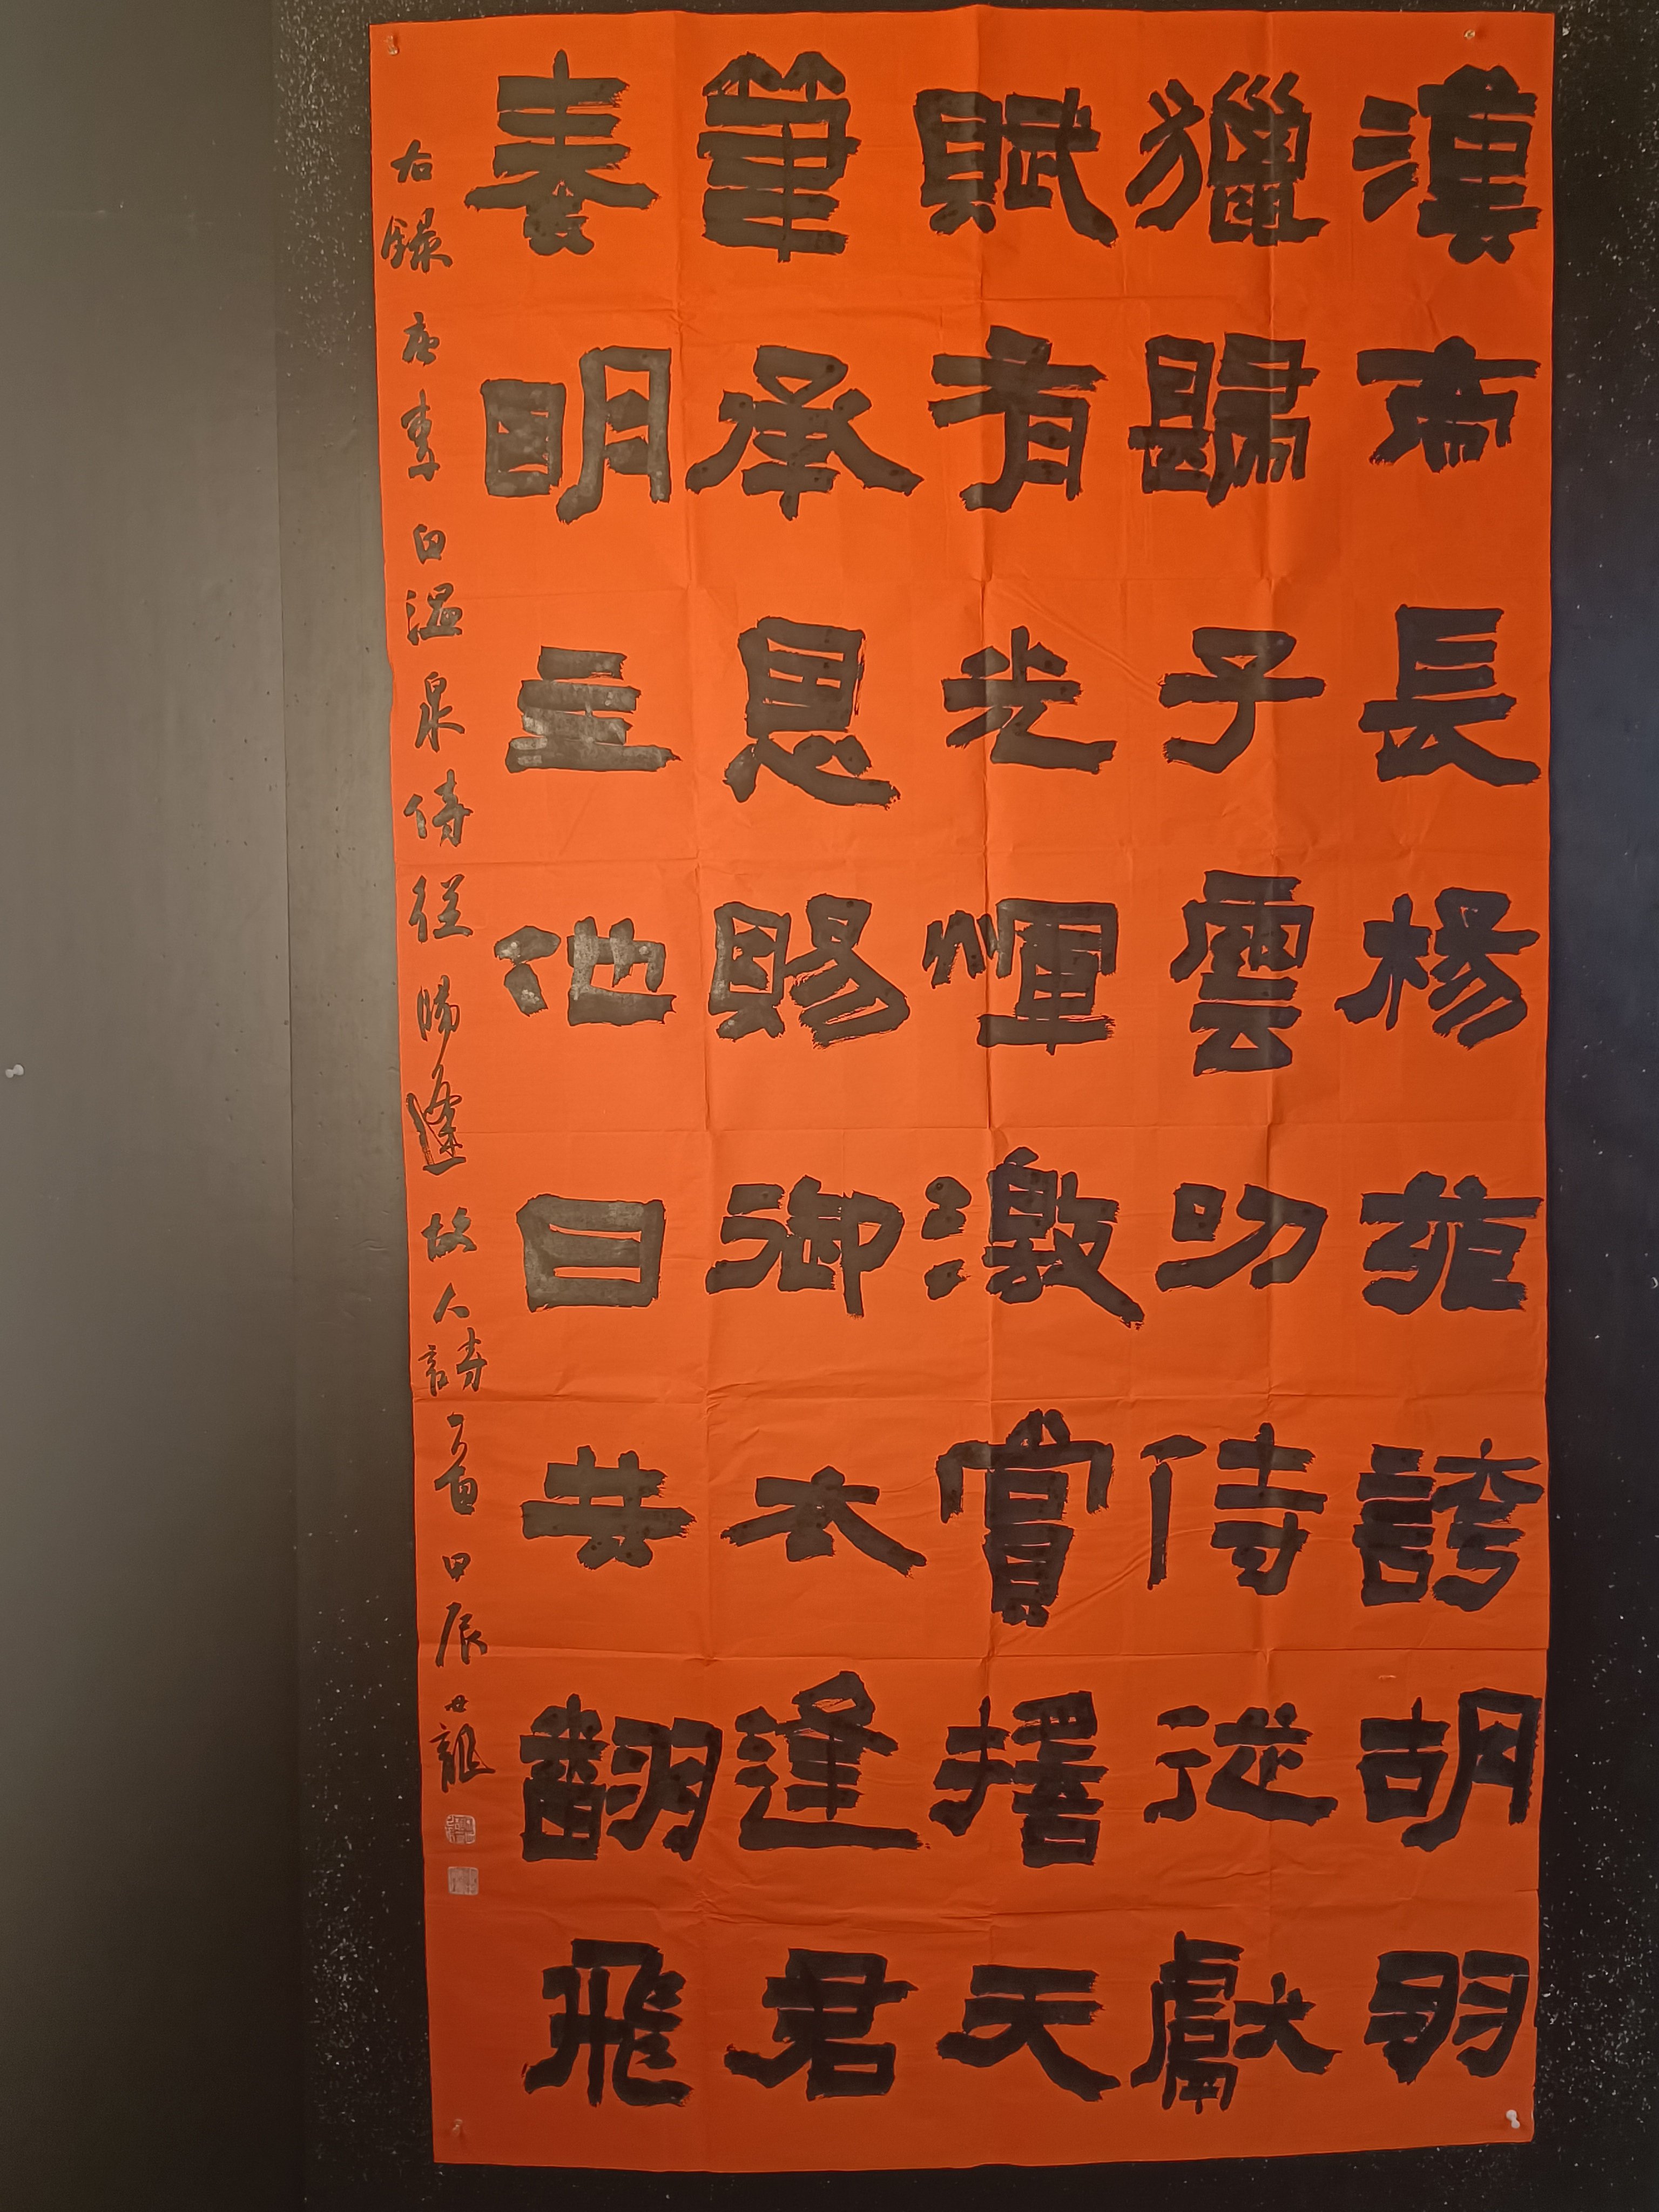 漢帝長楊苑誇胡羽
獵歸子雲叨侍從獻
賦有光煇激賞搖天
筆承恩賜御衣逢君
奏明主他日共翻飛
右録唐李白温泉侍從歸逢故人詩一首甲辰世龍